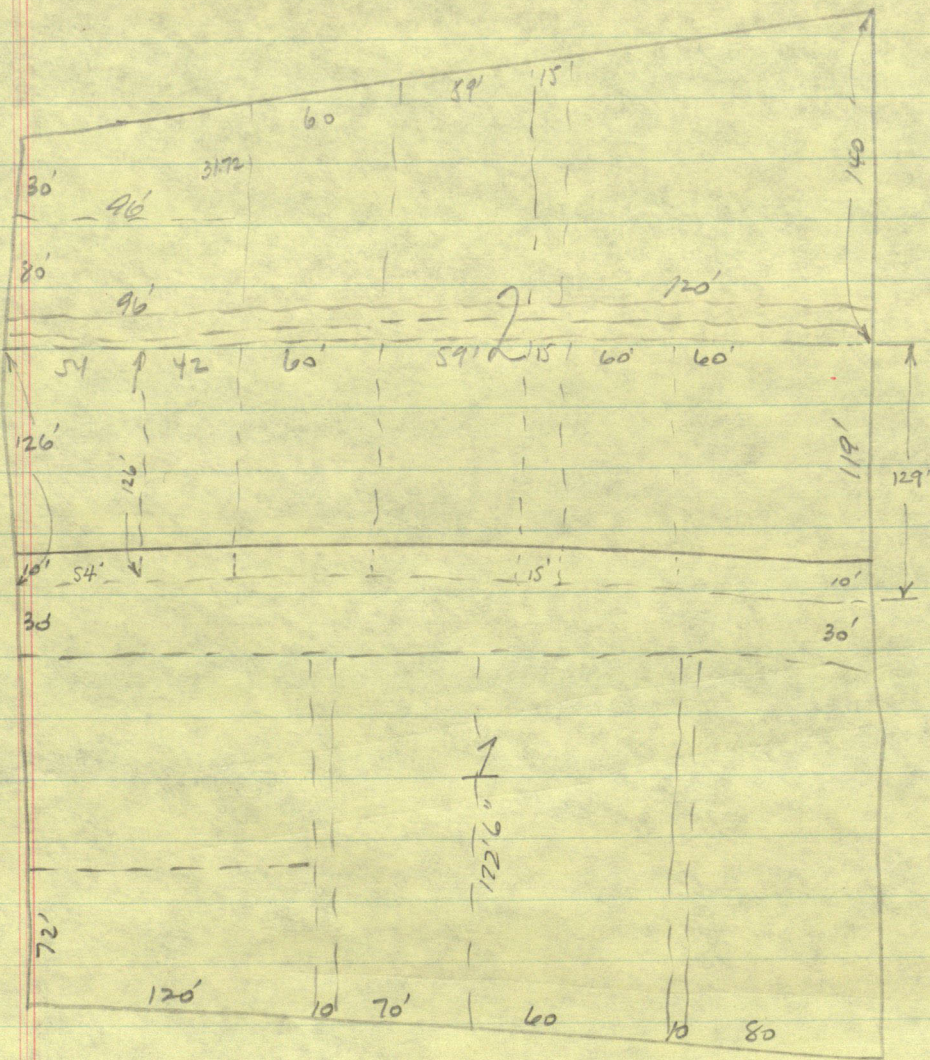 59' 15'
60
140
31.72
30'
96'
80'
96' 120'
2
54 42 60' 59' 15' 60' 60'
126' 126' 119' 129'
10' 54' 15' 10'
30' 30'
1
122'6"
72'
120' 10' 70' 60 10 80